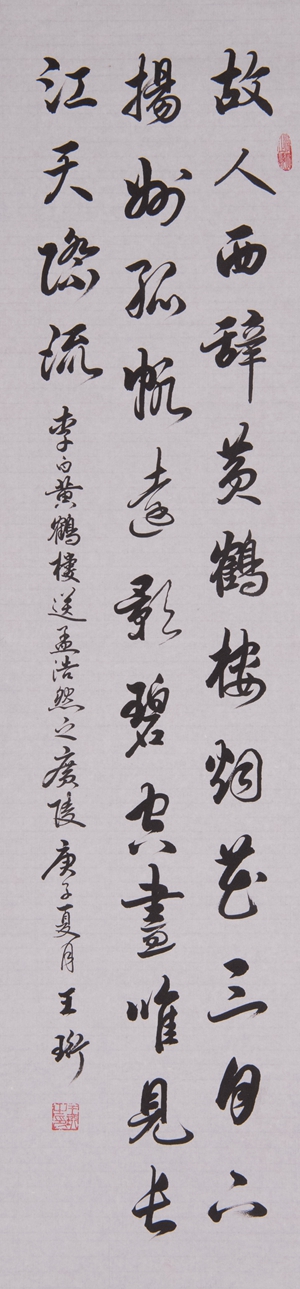 故人西辞黄鶴楼烟花三月下
揚州孤帆遠影碧空盡唯見长
江天際流
李白黄鶴樓送孟浩然之廣陵 庚子夏月 王珩